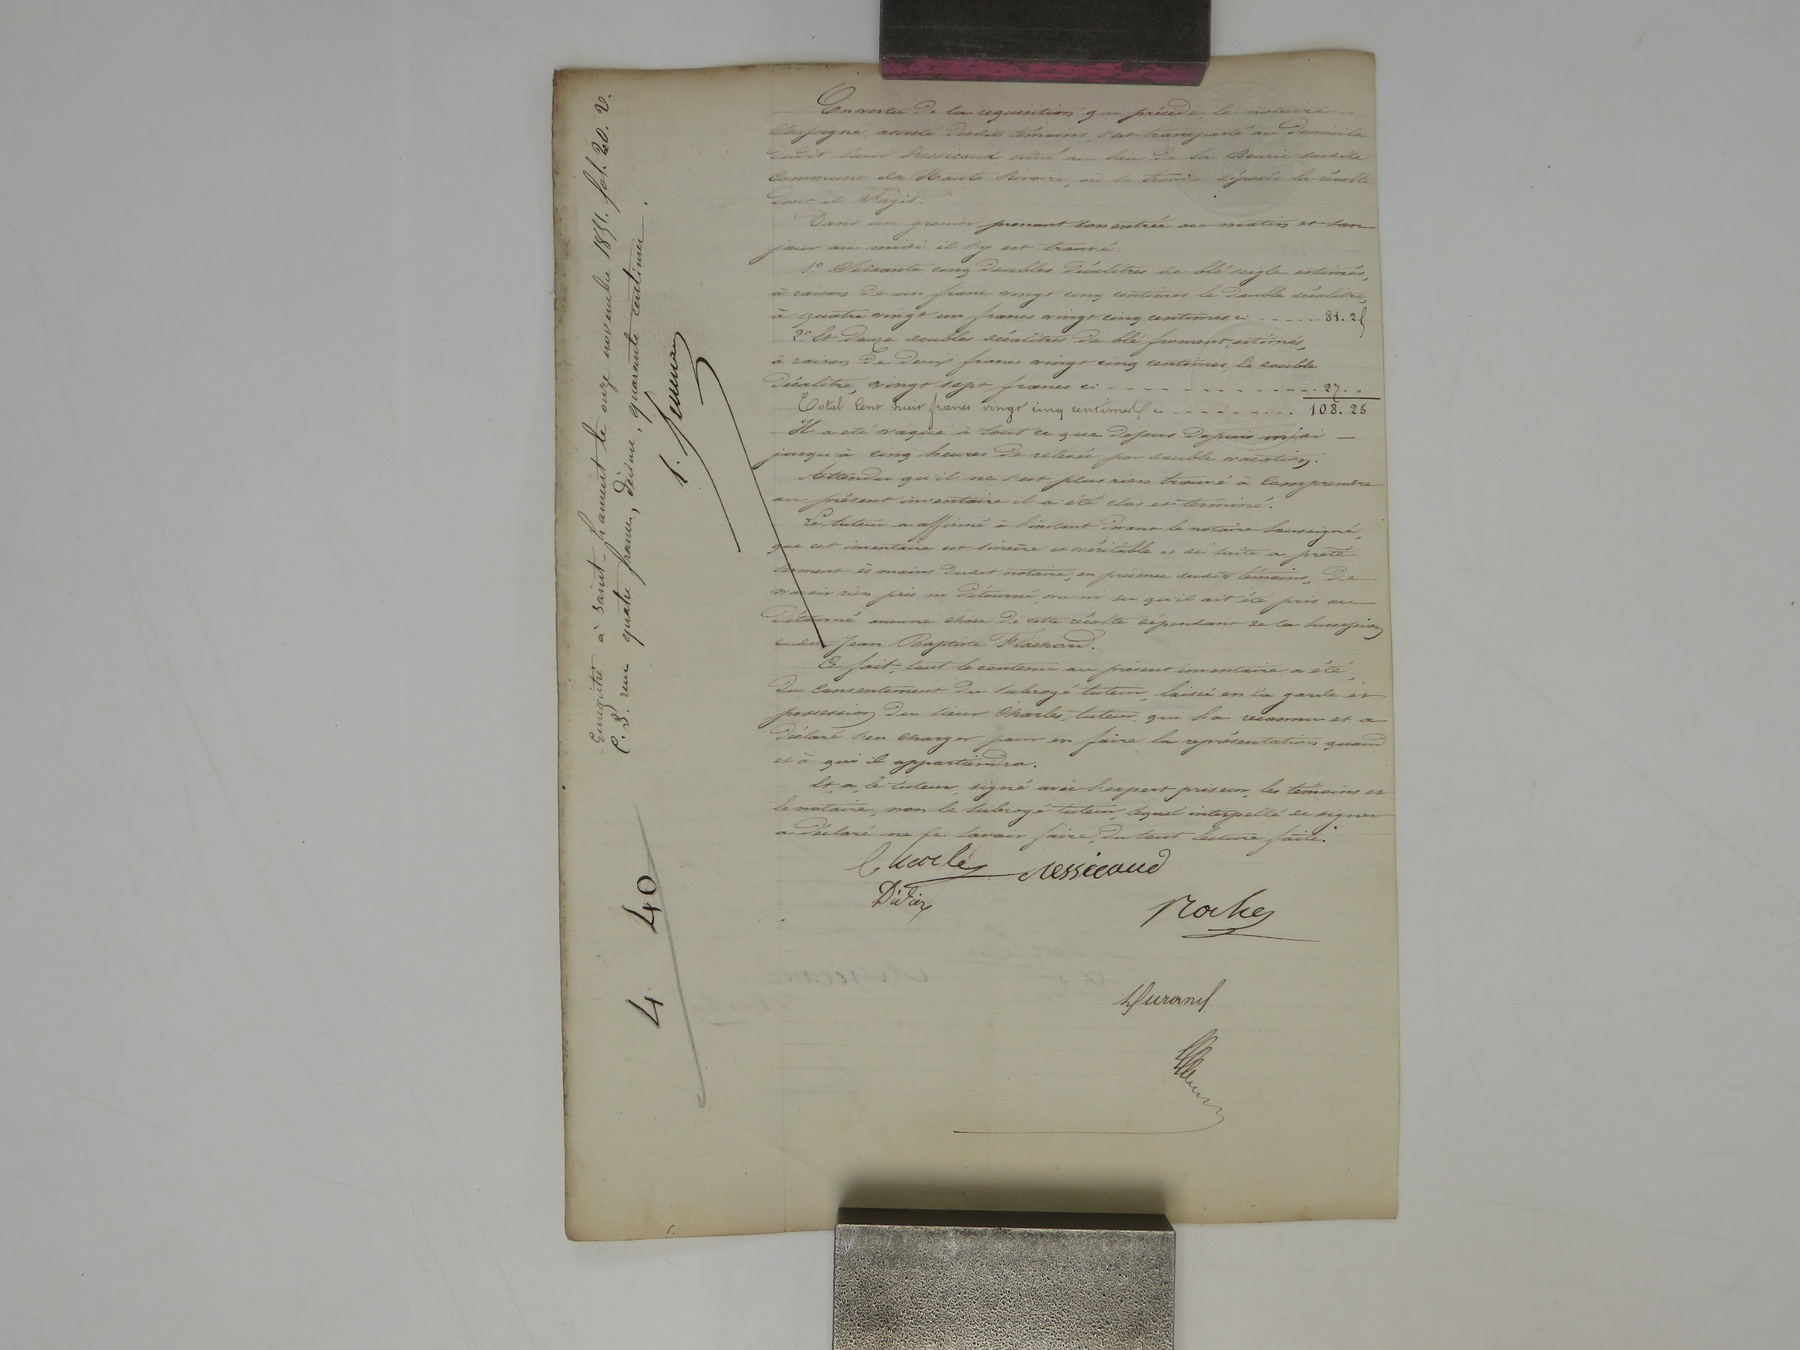 En vertu de la requisition qui précède le notaire
soussigné, assisté desdits témoins, s'est transporté au domicile
dudit sieur Ressicaud situé au lieu de la susdite
commune de Haute Rivoire, où se trouve déposée la récolte
dont il s'agit.
Dans un grenier prenant son entrée au matin et son
jour au midi il s'y est trouvé.
1.° Soixante cinq doubles décalitres de blé seigle estimés,
à raison de un franc vingt cinq centimes le double décalitre,
à quatre vingt un francs vingt cinq centimes ci - - - - - 81. 25
2.° Et douze doubles décalitres de blé froment, estimés,
à raison de deux francs vingt cinq centimes, le double
décalitre, vingt sept francs ci - - - - - 27. "
Total Cent huit francs vingt cinq centimes ci - - - - - 108. 25
Il a été vaqué à tout ce que dessus depuis midi —
jusqu'à cinq heures de relevée par double vacation.
Attendu qu'il ne s'est plus rien trouvé à comprendre
au présent inventaire il a été clos et terminé.
Le tuteur a affirmé à l'instant devant le notaire soussigné,
que cet inventaire est sincère et véritable et de suite a prêté
serment ès mains dudit notaire, en présence desdits témoins, de
n'avoir rien pris ni détourné, vu ni su qu'il ait été pris ou
détourné aucune chose de cette récolte dépendant de la succession
dudit Jean Baptiste Flachard.
Ce fait, tout le contenu au présent inventaire a été,
du consentement du subrogé tuteur, laissé en la garde et
possession du sieur Charles, tuteur, qui l'a reconnu et a
déclaré s'en charger pour en faire la représentation quand
et à qui il appartiendra.
Et a, le tuteur, signé avec l'expert priseur, les témoins et
le notaire, non le subrogé tuteur, lequel interpellé de signer
a déclaré ne le savoir faire, du tout lecture faite.
Charles Ressicaud
Roche
Durand
Enregistré à Saint Laurent le onze novembre 1851. fol. 20. V.
C. 3. reçu quatre francs, décime, quarante centimes.
4 40